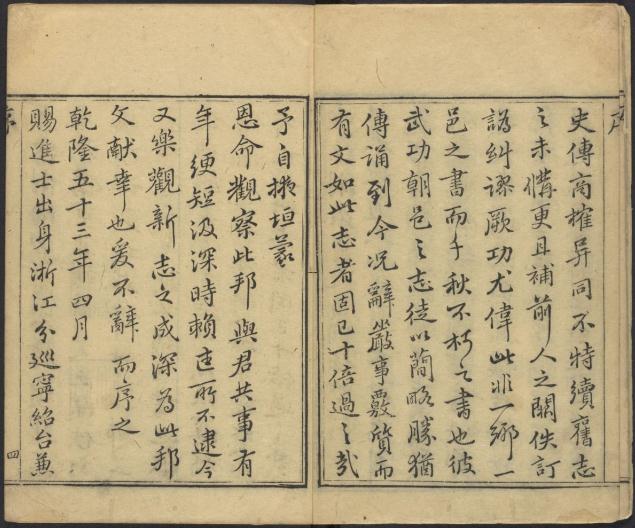 序
史傳商榷异同不特續舊志
之未備更且補前人之闕佚訂
譌糾謬厥功尤偉此非一鄉一
邑之書而千秋不朽之書也彼
武功朝邑之志徒以簡略勝猶
傳誦到今況辭嚴事覈質而
有文如此志者固已十倍過之哉
予自掖垣蒙
恩命觀察此邦與君共事有
年綆短汲深時賴匡所不逮今
又樂觀新志之成深為此邦
文獻幸也爰不辭而序之
乾隆五十三年四月
賜進士出身浙江分巡寧紹台兼
序
四